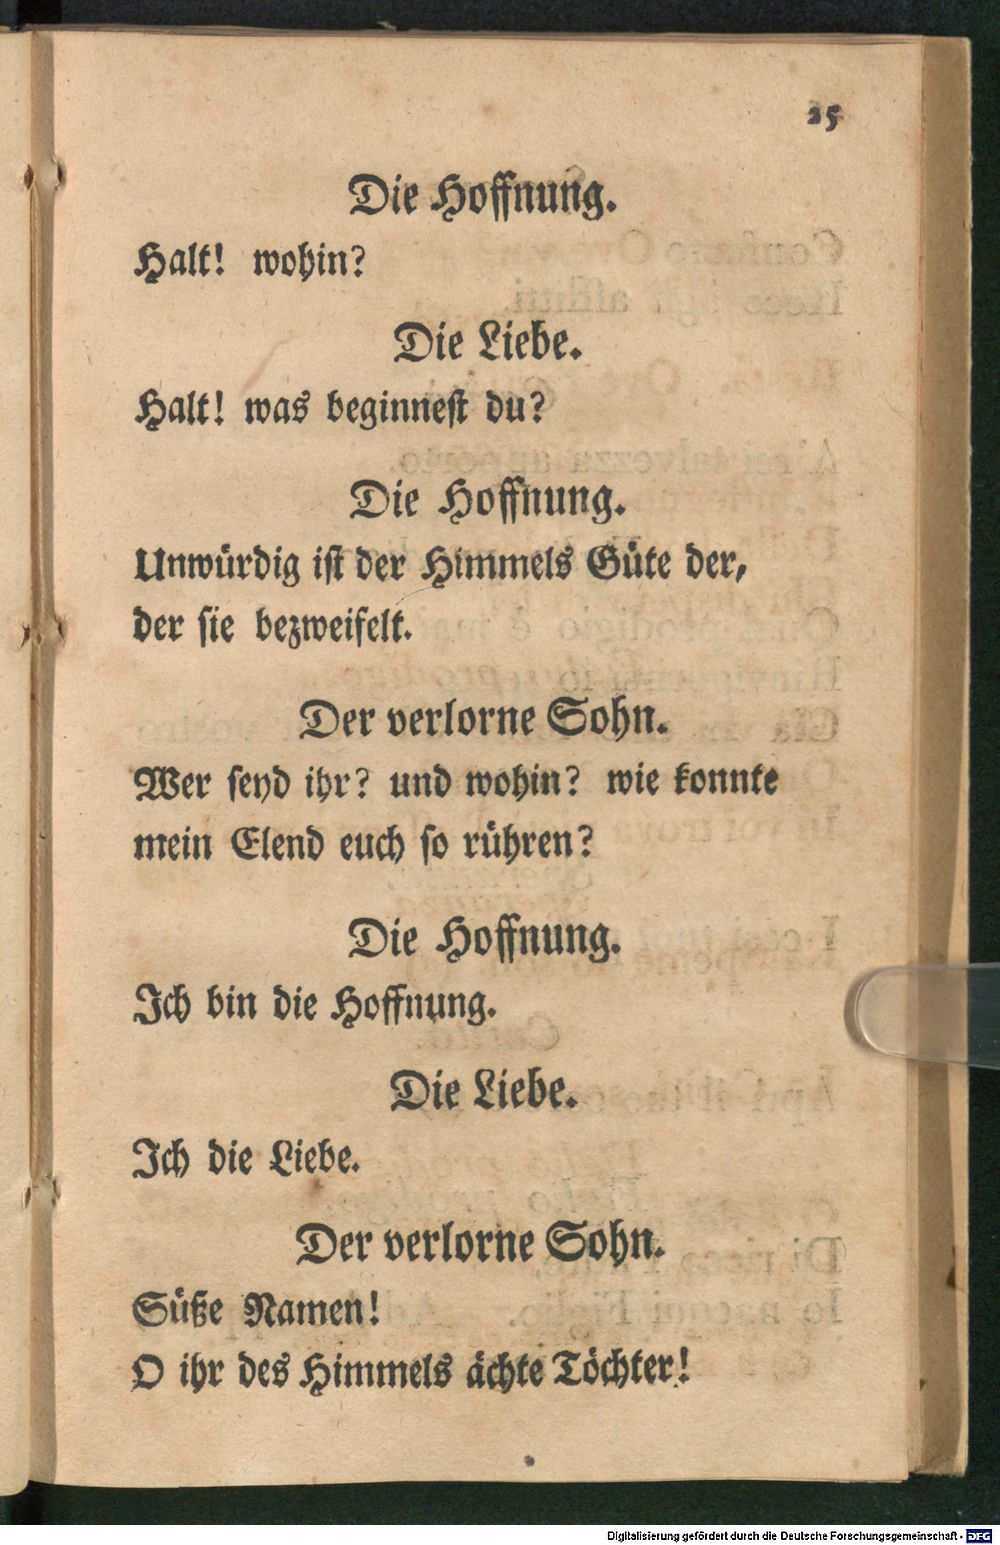 25
Die Hoffnung.
Halt! wohin?
Die Liebe.
Halt! was beginnest du?
Die Hoffnung.
Unwürdig ist der Himmels Güte der,
der sie bezweifelt.
Der verlorne Sohn.
Wer seyd ihr? und wohin? wie konnte
mein Elend euch so rühren?
Die Hoffnung.
Ich bin die Hoffnung.
Die Liebe.
Ich die Liebe.
Der verlorne Sohn.
Süße Namen!
O ihr des Himmels ächte Töchter!
Digitalisierung gefördert durch die Deutsche Forschungsgemeinschaft - DFG